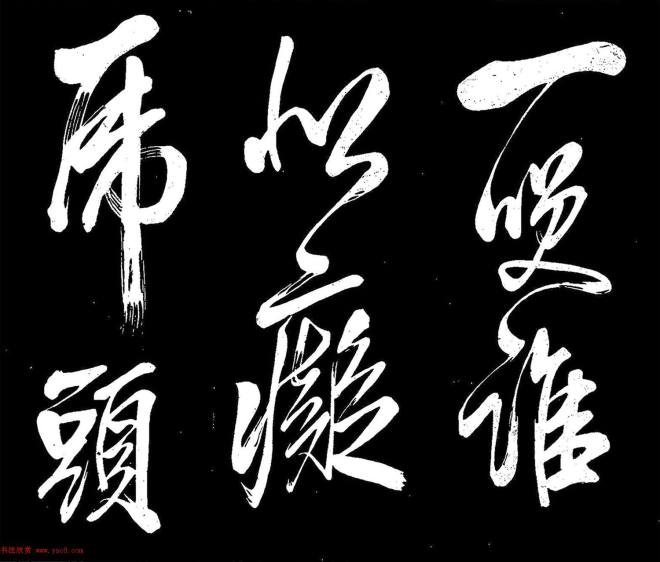 一咲誰
似癡
虎頭
书法欣赏 www.yac8.com